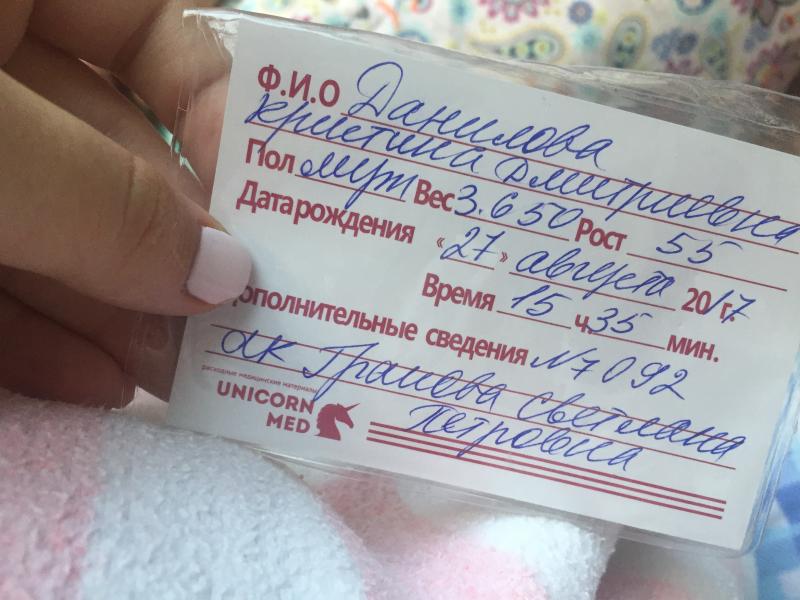 Ф.И.О Данилова
Кристина Дмитриевна
Пол муж Вес 3.650 Рост 55
Дата рождения «27» августа 2017 г.
Время 15 ч 35 мин.
дополнительные сведения N7092
АК Грашева Светлана
Петровна
расходные медицинские материалы
UNICORN
MED